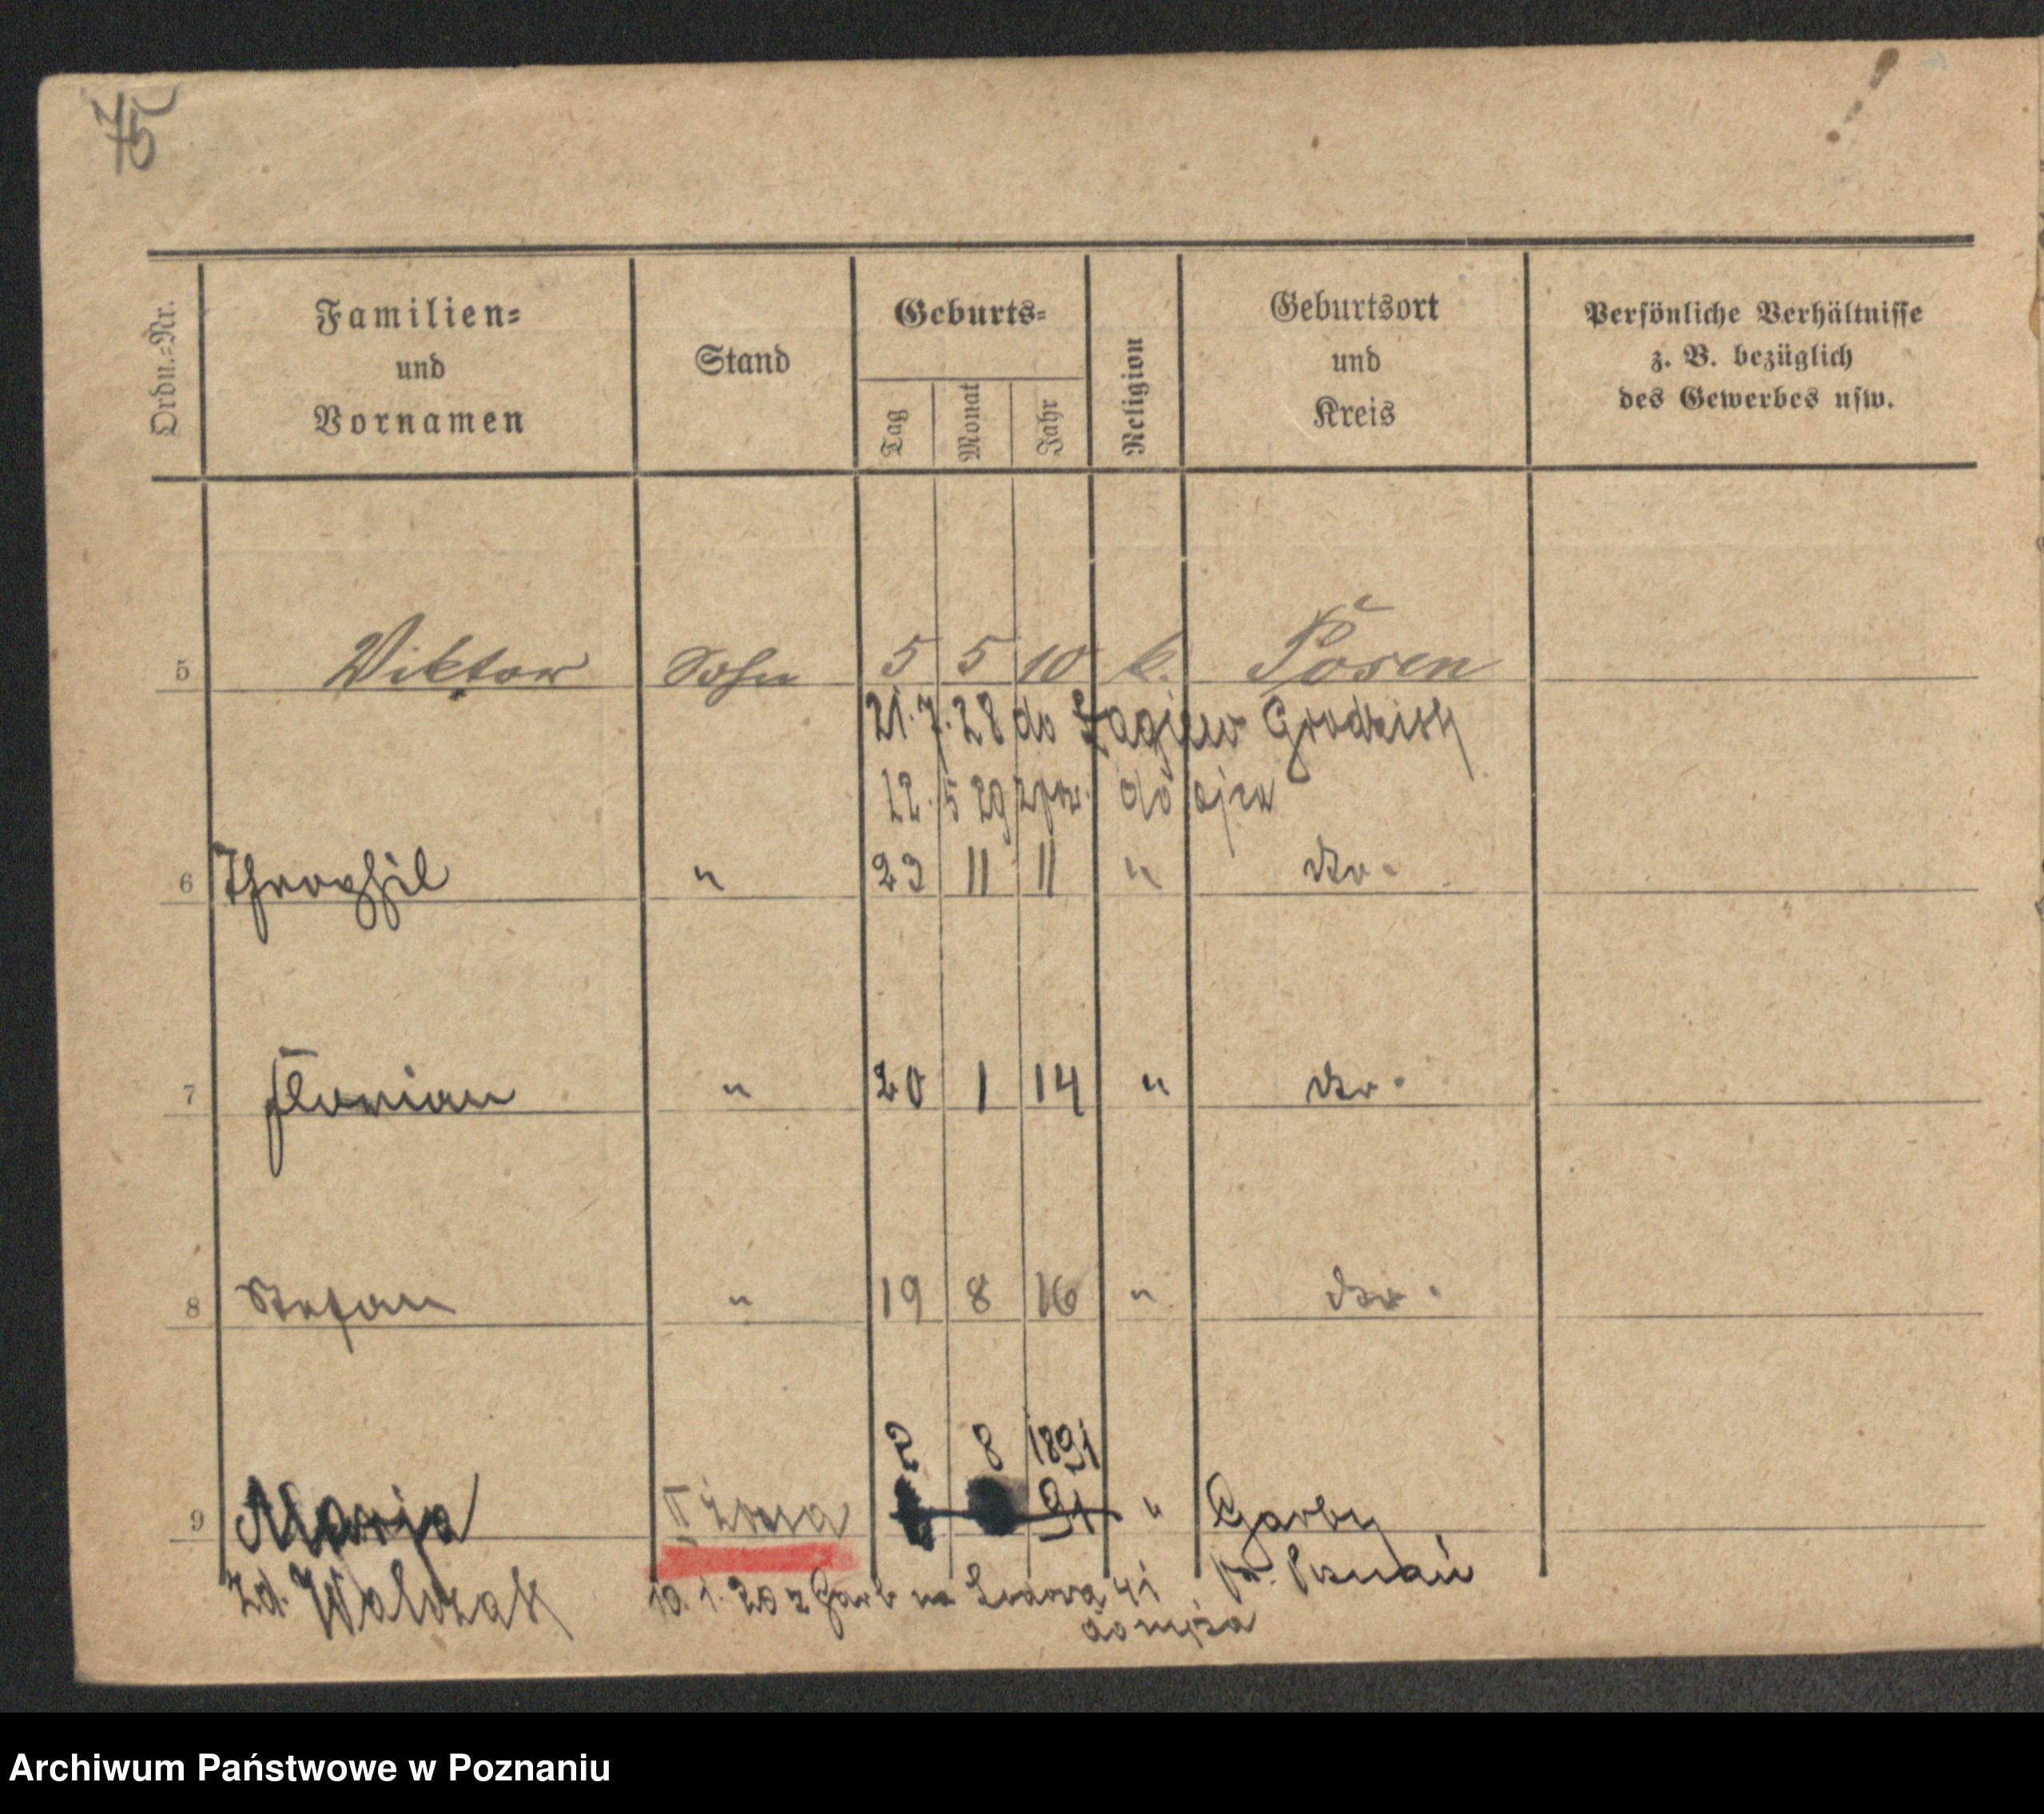 75
Ordn.=Nr. Familien= und Vornamen Stand Geburts= Tag Monat Jahr Religion Geburtsort und Kreis Persönliche Verhältnisse z. B. bezüglich des Gewerbes usw.
5 Viktor Sohn 5 5 10 k. Posen
21.7.28 do Grodzisk
12.5 29 do ojca
6 Theophil " 23 11 11 " do.
7 Florian " 20 1 14 " do.
8 Stefan " 19 8 16 " do.
2 8 1891
9 Marja II żona 91 " Garby
zd. Walczak 10. 1. 20 z Garb na 41 Poznań
do męża
Archiwum Państwowe w Poznaniu